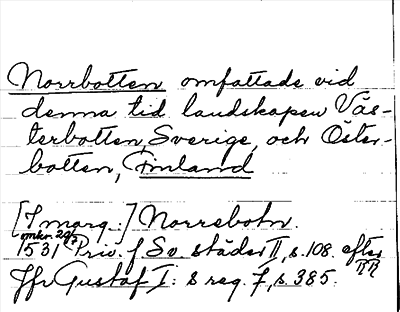 Norrbotten omfattade vid
denna tid landskapen Väs-
terbotten, Sverige, och Öster-
botten, Finland
[I marg.:] Norrebotn.
omkr. 29/7
1531 Priv. f Sv. städer II, s. 108. efter
RR
Jfr Gustaf I:s reg. 7, s. 385.